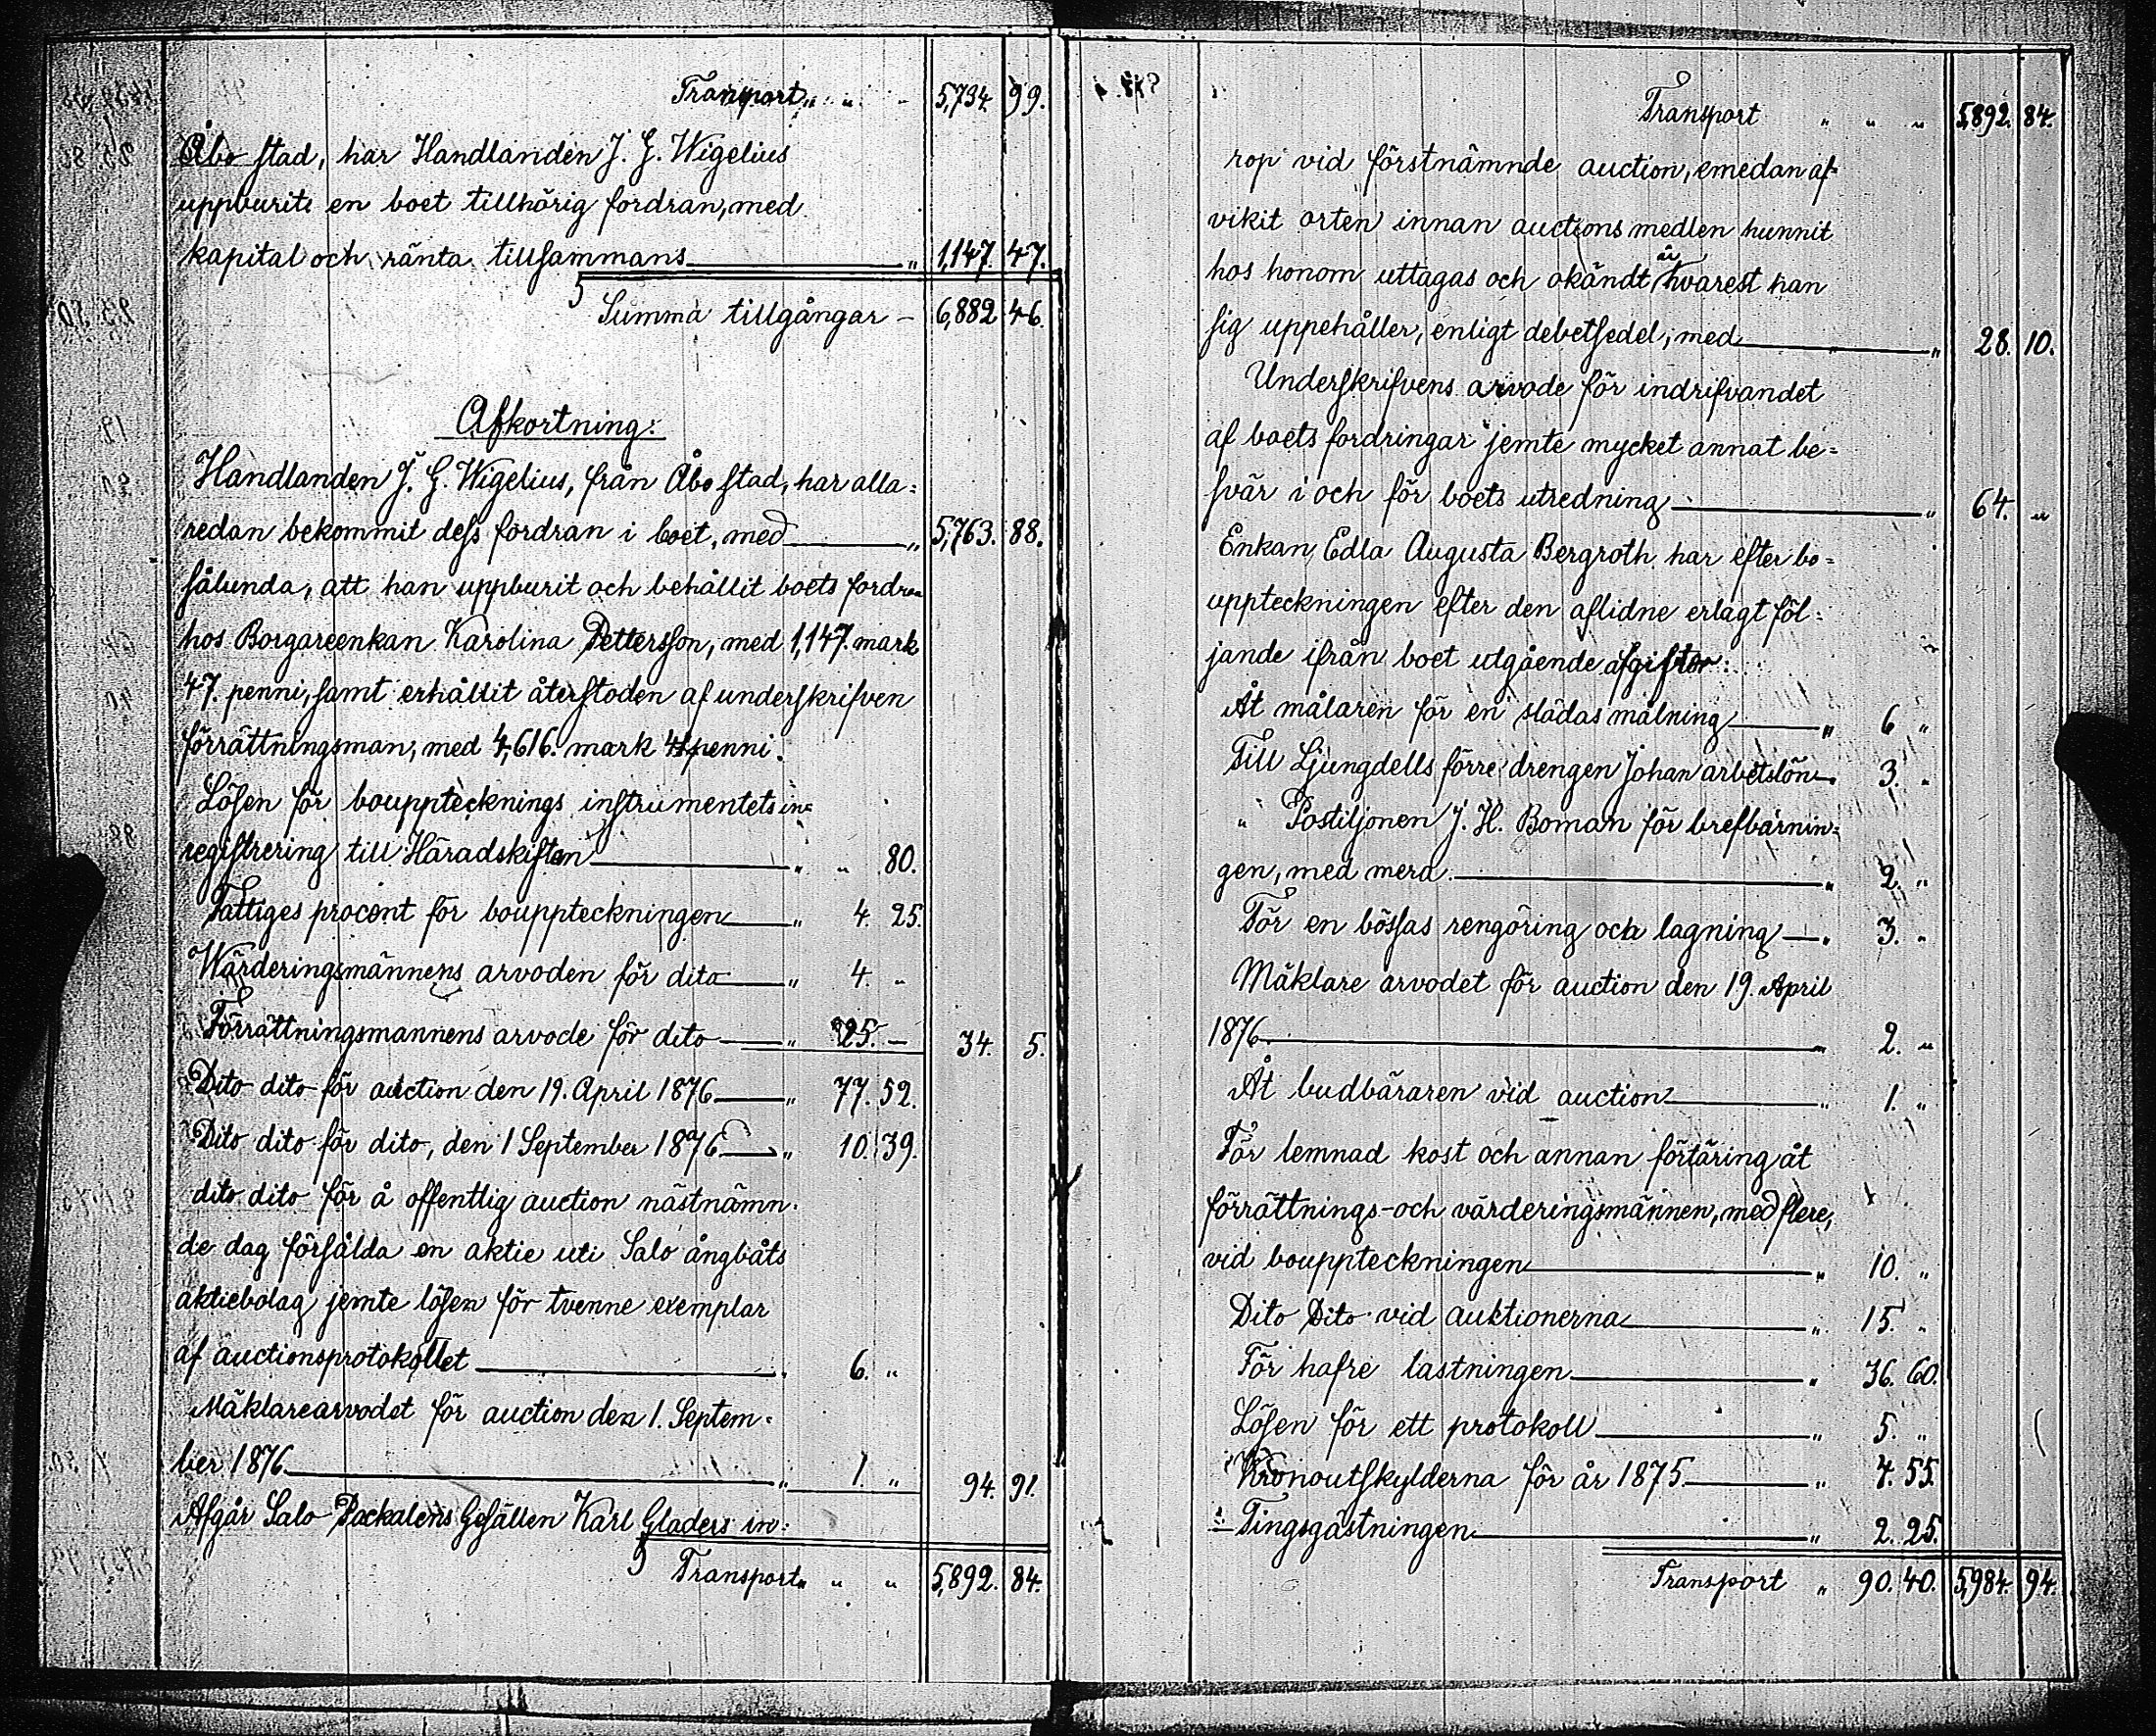 Transport „ „ „ 5,734. 99.
Åbo stad, har Handlanden J. G. Wigelius
uppburit en boet tillhörig fordran, med
kapital och ränta tillsammans „ 1,147. 47.
Summa tillgångar – 6,882 46.
Afkortning:
Handlanden J. G. Wigelius, från Åbo stad, har alla=
redan bekommit dess fordran i boet, med „ 5,763. 88.
sålunda, att han uppburit och behållit boets fordran
hos Borgareenkan Karolina Pettersson, med 1,147. mark
47. penni, samt erhållit återstoden af underskrifven
förrättningsman, med 4,616. mark 41 penni.
Lösen för bouppteknings instrumentets in=
registrering till Häradskistan „ „ 80.
Fattiges procent för bouppteckningen „ 4. 25.
Wärderingsmännens arvoden för dito „ 4. „
Förrättningsmannens arvode för dito „ 25. – 34. 5.
Dito dito för auction den 19. April 1876 „ 77. 52.
Dito dito för dito, den 1 September 1876 „ 10. 39.
dito dito för å offentlig auction nästnämn=
de dag försålda en aktie uti Salo ångbåts
aktiebolag jemte lösen för tvenne exemplar
af auctionsprotokollet „ 6. „
Mäklarearvodet för auction den 1. Septem=
ber 1876 „ 1. „ 94. 91.
Afgår Salo Packalens Gesällen Karl Gladers in=
Transport „ „ „ 5,892. 84.
Transport „ „ „ 5,892. 84.
rop vid förstnämnde auction, emedan af=
vikit orten innan auctions medlen hunnit
hos honom uttagas och okändt är hvarest han
sig uppehåller, enligt debetsedel, med „ 28. 10.
Underskrifvens arvode för indrifvandet
af boets fordringar jemte mycket annat be=
svär i och för boets utredning „ 64. „
Enkan Edla Augusta Bergroth har efter bo=
uppteckningen efter den aflidne erlagt föl=
jande ifrån boet utgående afgifter:
Åt målaren för en slädas målning „ 6 „
Till Ljungdells förre drengen Johan arbetslön „ 3. „
„ Postiljonen J. H. Boman för brefbärnin=
gen, med mera „ 2. „
För en bössas rengöring och lagning „ 3. „
Mäklare arvodet för auction den 19. April
1876 „ 2. „
Åt budbäraren vid auction „ 1. „
För lemnad kost och annan förtäring åt
förrättnings- och värderingsmännen, med flere,
vid bouppteckningen „ 10. „
Dito Dito vid auktionerna „ 15. „
För hafre lastningen „ 36. 60.
Lösen för ett protokoll „ 5. „
Kronoutskylderna för år 1875 „ 4. 55.
Tingsgästningen „ 2. 25.
Transport „ 90. 40. 5,984. 94.